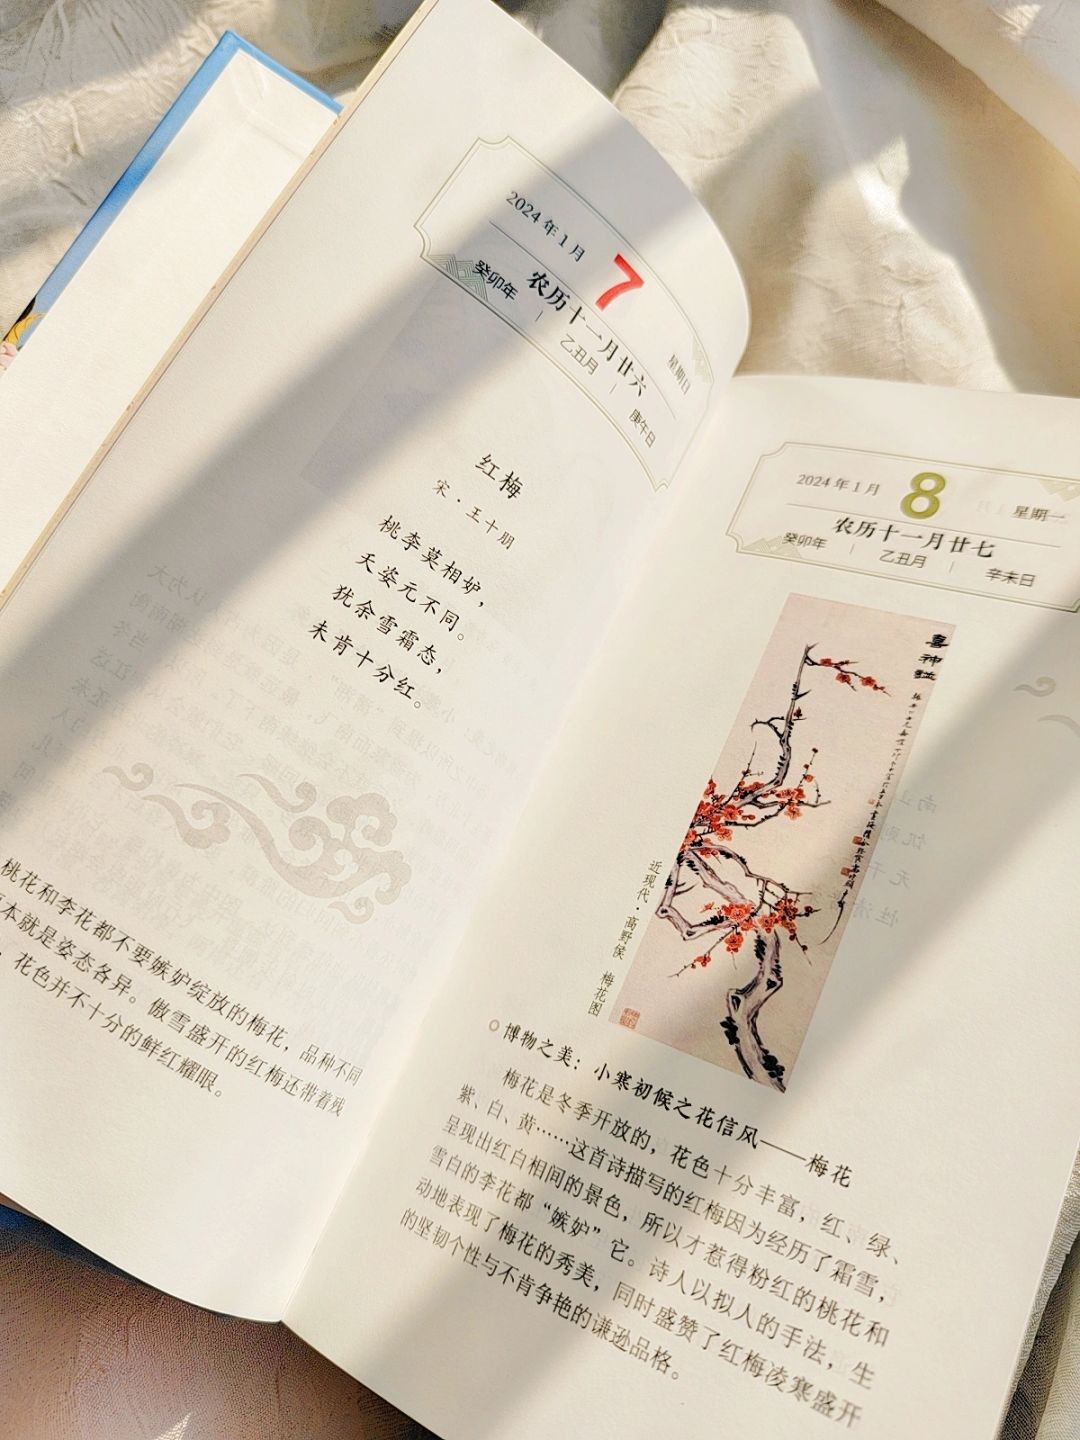 2024年1月
7
星期日
农历十一月廿六
癸卯年 | 乙丑月 | 庚午日
红梅
宋·王十朋
桃李莫相妒，
夭姿元不同。
犹余雪霜态，
未肯十分红。
桃花和李花都不要嫉妒绽放的梅花，品种不同
本就是姿态各异。傲雪盛开的红梅还带着残
，花色并不十分的鲜红耀眼。
2024年1月
8
星期一
农历十一月廿七
癸卯年 | 乙丑月 | 辛未日
喜神
近现代·高野侯 梅花图
博物之美：小寒初候之花信风——梅花
梅花是冬季开放的，花色十分丰富，红、绿、
紫、白、黄……这首诗描写的红梅因为经历了霜雪，
呈现出红白相间的景色，所以才惹得粉红的桃花和
雪白的李花都“嫉妒”它。诗人以拟人的手法，生
动地表现了梅花的秀美，同时盛赞了红梅凌寒盛开
的坚韧个性与不肯争艳的谦逊品格。